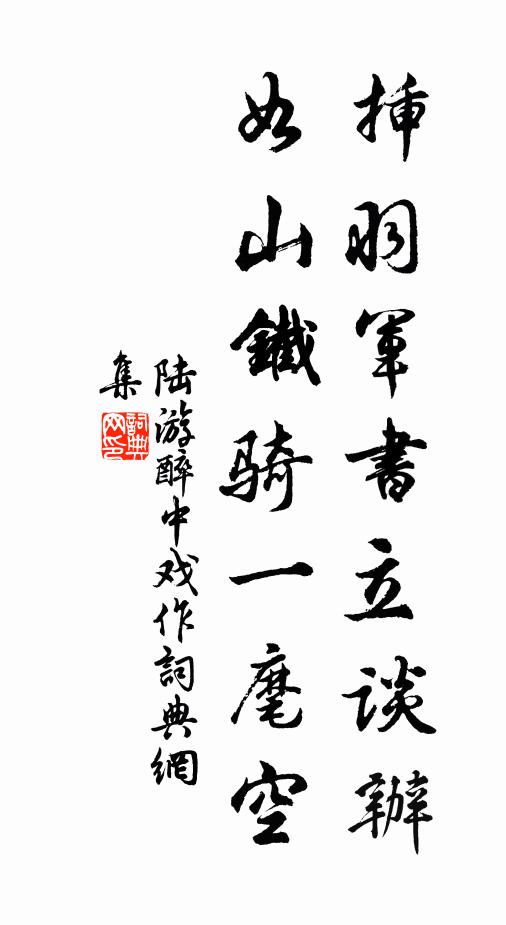 插羽軍書立談辦
如山鐵騎一麾空
陆游醉中戏作詞典網
集
詞典
网印